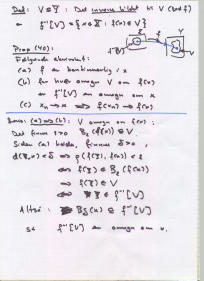 Def: V ⊆ Y : Det inverse billedet til V (ved f)
er f⁻¹[V] = {x ∈ X : f(x) ∈ V}
Prop (40):
Følgende ekvivalent:
(a) f er kontinuerlig i x
(b) for hver omegn V om f(x)
er f⁻¹[V] en omegn om x
(c) xₙ → x ⟹ f(xₙ) → f(x)
Bevis: (a) ⟹ (b): V omegn om f(x):
Det finnes ε > 0 B_ε(f(x)) ⊆ V.
Siden (a) holder, finnes δ > 0,
d(ξ, x) < δ ⟹ ρ(f(ξ), f(x)) < ε
⟺ f(ξ) ∈ B_ε(f(x))
⟹ f(ξ) ∈ V
⟺ ξ ∈ f⁻¹[V]
Altså: B_δ(x) ⊆ f⁻¹[V]
så f⁻¹[V] er omegn om x.